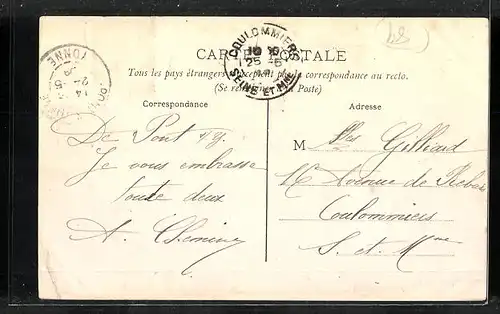 CARTE POSTALE
Tous les pays étrangers n'acceptent pas la correspondance au recto.
(Se renseigner à la Poste)
COULOMMIERS
25 -5
SEINE ET MNE
YONNE
14
24-5
Correspondance
Adresse
De Pont s/y.
Je vous embrasse
toute deux
A.
M lles Gilliard
16 Avenue de
Coulommiers
S. et Mne